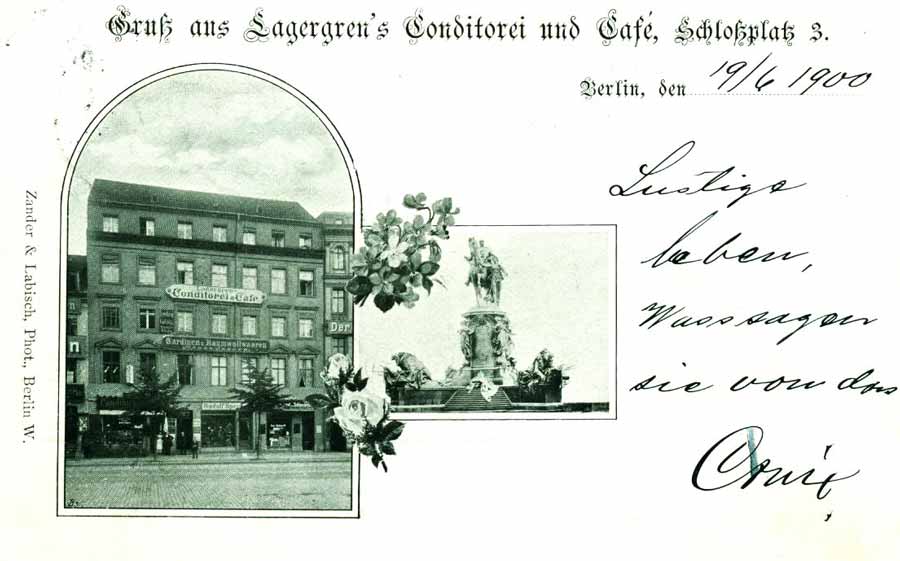 Gruß aus Lagergren's Conditorei und Café, Schloßplatz 3.
Berlin, den 19/6 1900
Lustige
leben,
Was sagen
sie von das
Zander & Labisch, Phot., Berlin W.
Conditorei & Café
Gardinen & Baumwollwaaren
Der